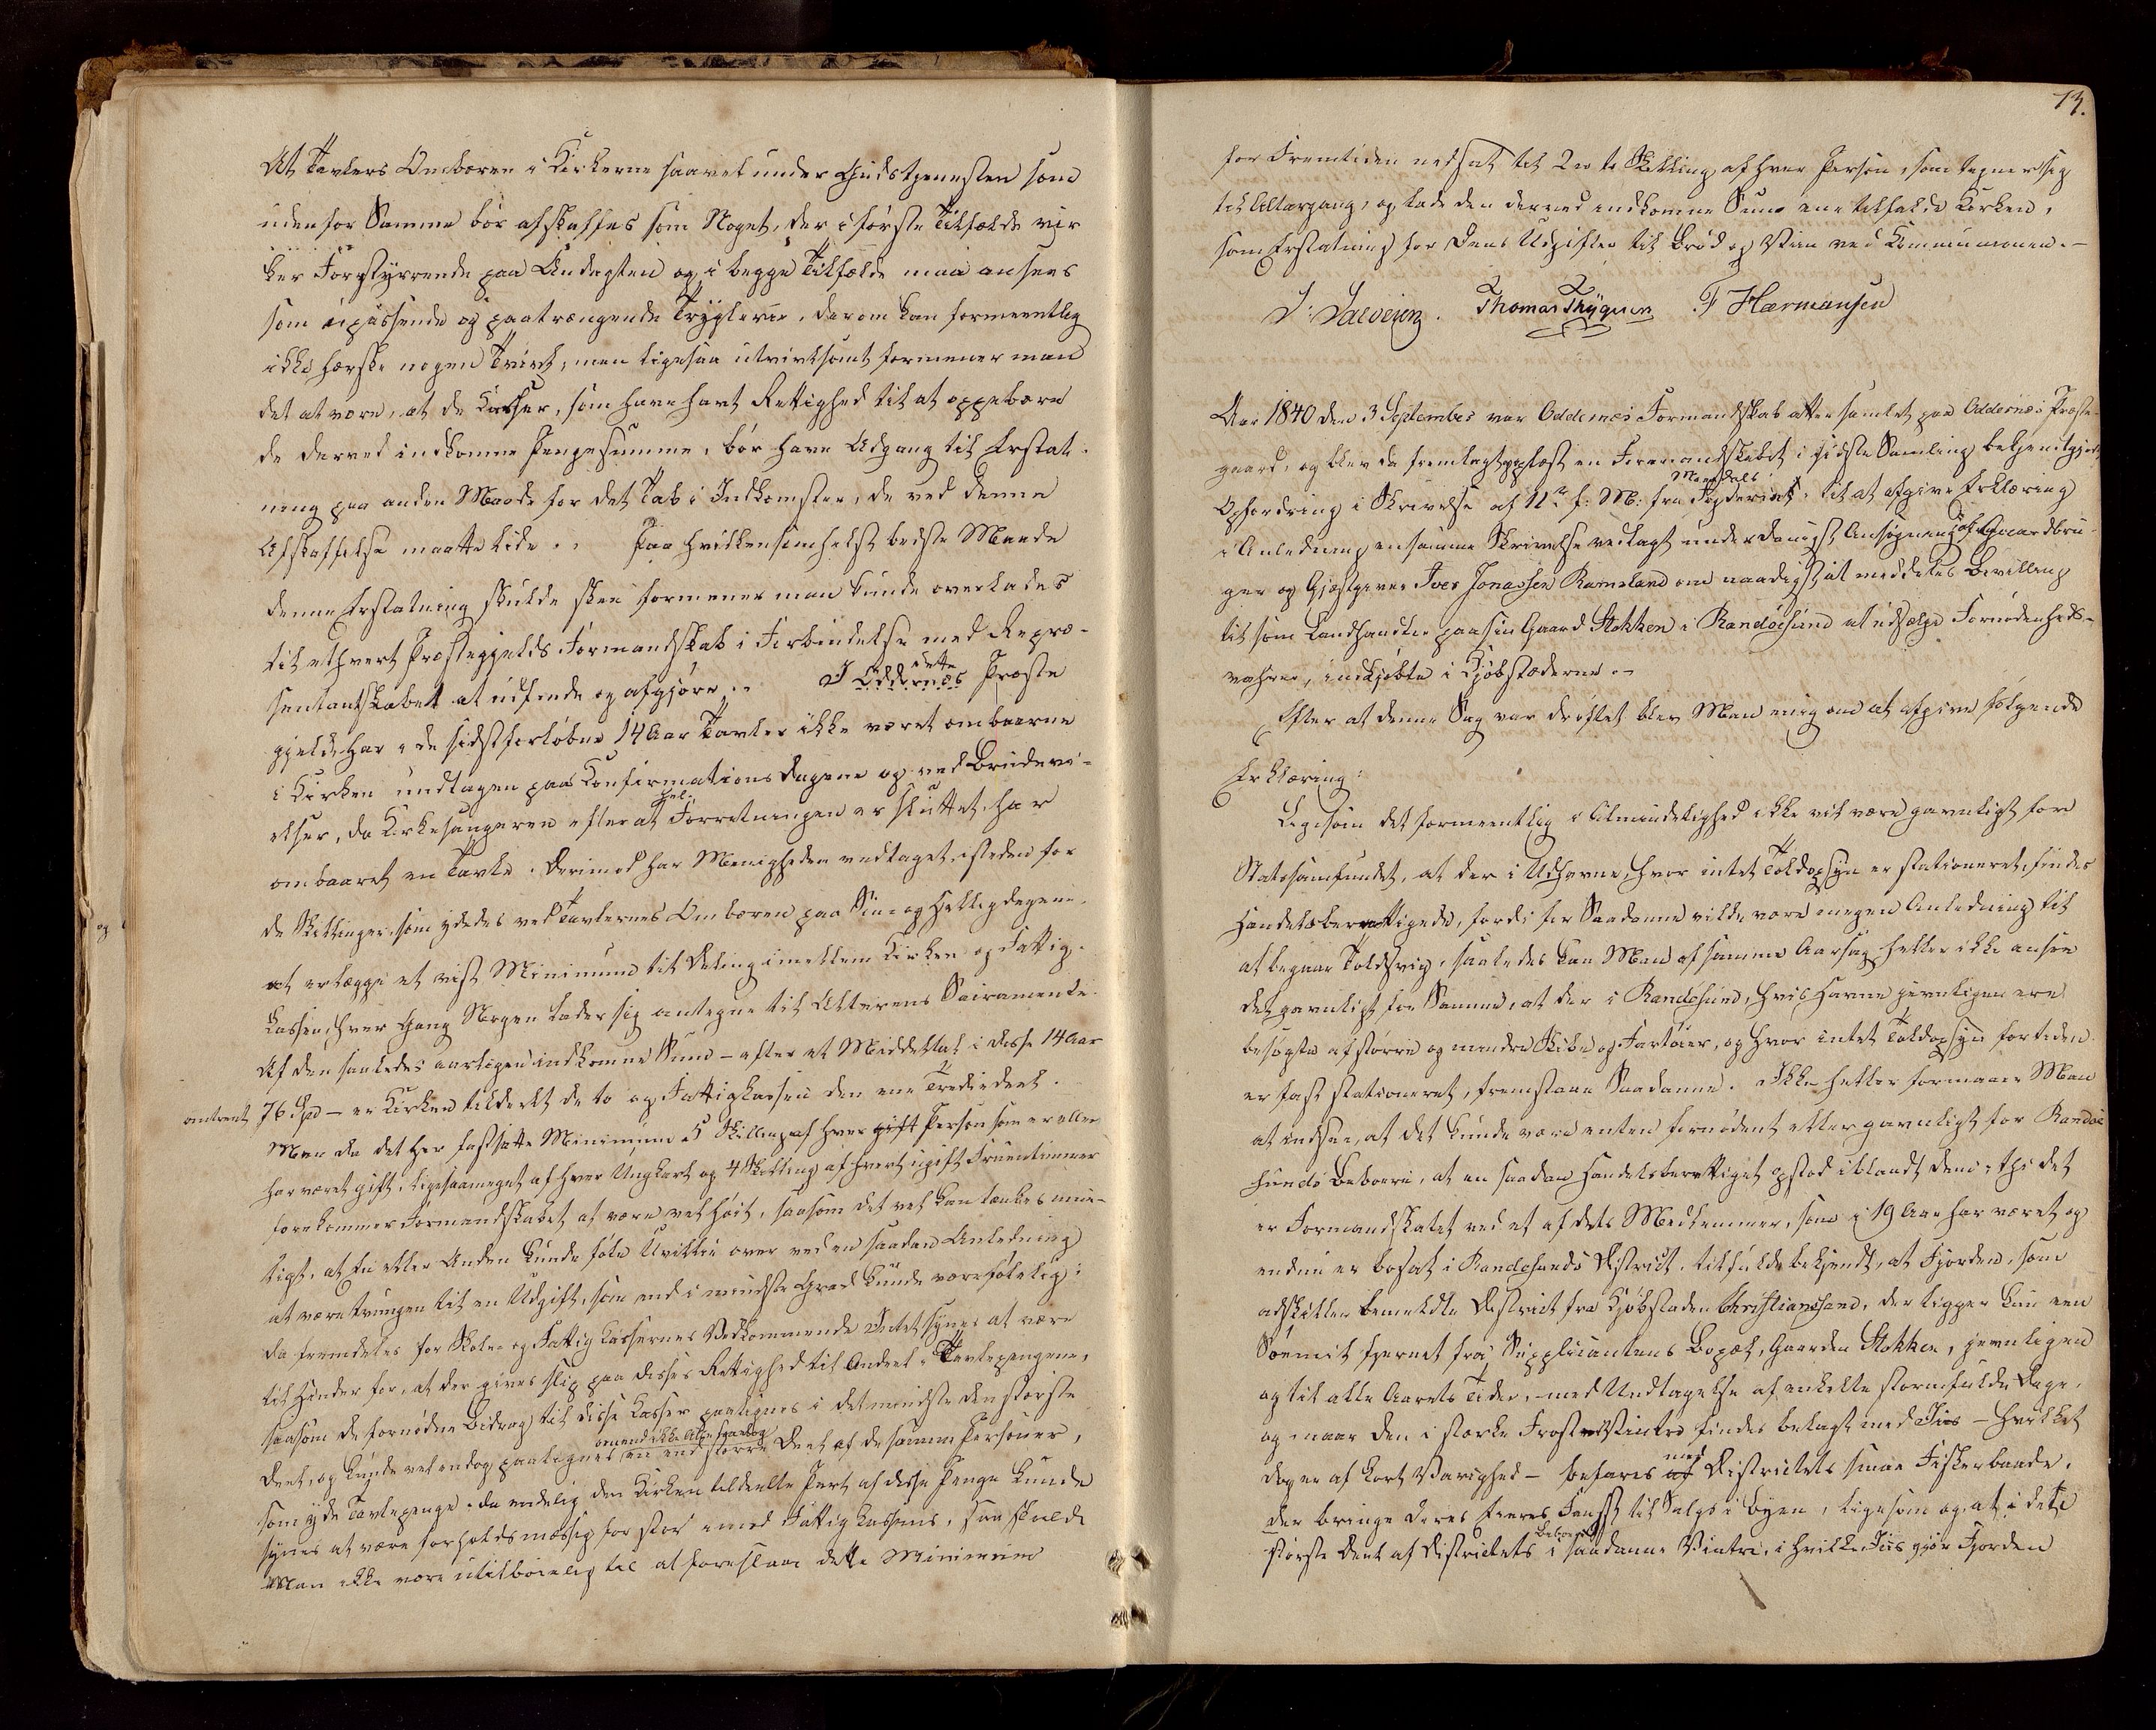 At Tavlers Ombæren i Kirkerne saavel under Gudstjenesten som
udenfor Samme bör afskaffes som Noget, der i förste Tilfælde vir
ker Forstyrrende paa Andagten og i begge Tilfælde maa ansees
som upassende og paatrængende Tryglerie, derom kan formeentlig
ikke herske nogen Tvivl, men ligesaa utvivlsomt formener man
det at være, at de Kasser, som have havt Rettighed til at oppebære
de derved indkomne Pengesumme, bör have Adgang til Erstat-
ning paa anden Maade for det Tab i Indkomster, de ved denne
Afskaffelse maatte lide.. Paa hvilkensomhelst bedste Maade
denne Erstatning skulde skee formener man burde overlades
til ethvert Præstegjelds Formandskab i Forbindelse med Repræ-
sentantskabet at udfinde og afgjöre.. I Oddernes dette Præste
gjeld har i de sidstforlöbne 14 Aar Tavler ikke været ombaarne
i Kirken undtagen paa Confirmationsdagene og ved Brudevi-
elser, da Kirkesangeren efter at Forretningen er sluttet, har
ombaaret en Tavle. Derimod har Menigheden vedtaget, isteden for
de Skillinger, som ydedes ved Tavlernes Ombæren paa Sön- og Helligdagene,
at erlægge et vist Minimum til Deling imellem Kirken og Fattig-
kassen, hver Gang Nogen lader sig antegne til Alterens Sacramente.
Af den saaledes aarligen indkomne Sum - efter et Middeltal i disse 14 Aar
omtrent 76 Spd - er Kirken tildeelt de to og Fattigkassen den ene Trediedeel.
Men da det her fastsatte Minimum 5 Skilling af hver gift Person som er eller
har været gift, ligesaameget af hver Ungkarl og 4 Skilling af hvert ugift Fruentimmer
forekommer Formandskabet at være vel höit, saasom det vel kan tænkes mue-
ligt, at En eller Anden kunde föle Uvillie over ved en saadan Anledning
at være tvungen til en Udgift, som end i mindste Grad kunde være fölelig;
da fremdeles for Skole- og Fattigkassernes Vedkommende Intet synes at være
til Hinder for, at der gives slip paa disses Rettighed til Andeel i Tavlepengene,
saasom de fornödne Bidrag til disse Kasser paalignes i det mindste den störste
Deel, og kunde vel endog paalignes omend ikke alene saadog en end större Deel af de samme Personer,
som yde Tavlepenge; da endelig den Kirken tildeelte Part af disse Penge kunde
synes at være forholdsmæssig for stor imod Fattigkassens, saa skulde
Man ikke være utilböielig til at foreslaae dette Minimum
13.
for Fremtiden nedsat til 2 - to Skilling af hver Person, som tegner sig
til Altergang, og lade den derved indkomne Sum ene tilfalde Kirken,
som Erstatning for dens Udgifter til Bröd og Viin ved Communionen.-
Thomas Thygesen F Hermansen
Aar 1840 den 3 September var Oddernes Formandskab atter samlet paa Oddernes Præste-
gaard, og blev da fremlagt og oplæst en Formandskabet i sidste Samling bekjendtgjort
Opfordring i Skrivelse af 11te f: M: fra Mandals Fogderiet, til at afgive Erklæring
i Anledning en samme Skrivelse vedlagt underdanigst Ansögning af Gaardbru-
ger og Gjæstgiver Iver Jonassen Ramsland om naadigst at meddeles Bevilling
til som Landhandler paa sin Gaard Stokken i Randöesund at udsælge Fornödenheds-
vahrer, indkjöbte i Kjöbstæderne.-
Efter at denne Sag var dröftet blev Man enig om at afgive fölgende
Erklæring:
Ligesom det formeentlig i Almindelighed ikke vil være gavnligt for
Statssamfundet, at der i Udhavne, hvor intet Toldopsyn er stationeret, findes
Handelsberettigede, fordi for Saadanne vilde være megen Anledning til
at begaae Toldsvig, saaledes kan Man af samme Aarsag heller ikke ansee
det gavnligt for Samme, at der i Randösund, hvis Havne jevnligen ere
besögte af större og mindre Skibe og Fartöier, og hvor intet Toldopsyn fortiden
er fast stationeret, fremstaae Saadanne. Ikke heller formaaer Man
at indsee, at det kunde være enten fornödent eller gavnligt for Randöe
sunds Beboere, at en saadan Handelsberettiget opstod iblandt dem; thi det
er Formandskabet ved et af dets Medlemmer, som i 19 Aar har været og
endnu er bosat i Randesunds District, tilfulde bekjendt, at Fjorden, som
adskiller bemeldte District fra Kjöbstaden Christianssand, der ligger kun een
Söemiil fjernet fra Supplicantens Bopæl, Gaarden Stokken, jevnligen
og til alle Aarets Tider, - med Undtagelse af enkelte stormfulde Dage,
og naar den i stærke Frost-Vintre findes belagt med Iis - hvilket
dog er af kort Varighed - befares af med Districtets smaae Fiskerbaade,
der bringe deres Fangst til Salgs i Byen, ligesom og, at i det
störste Deel af Districtets Beboere i saadanne Vintre, i hvilke Iis gjör Fjorden